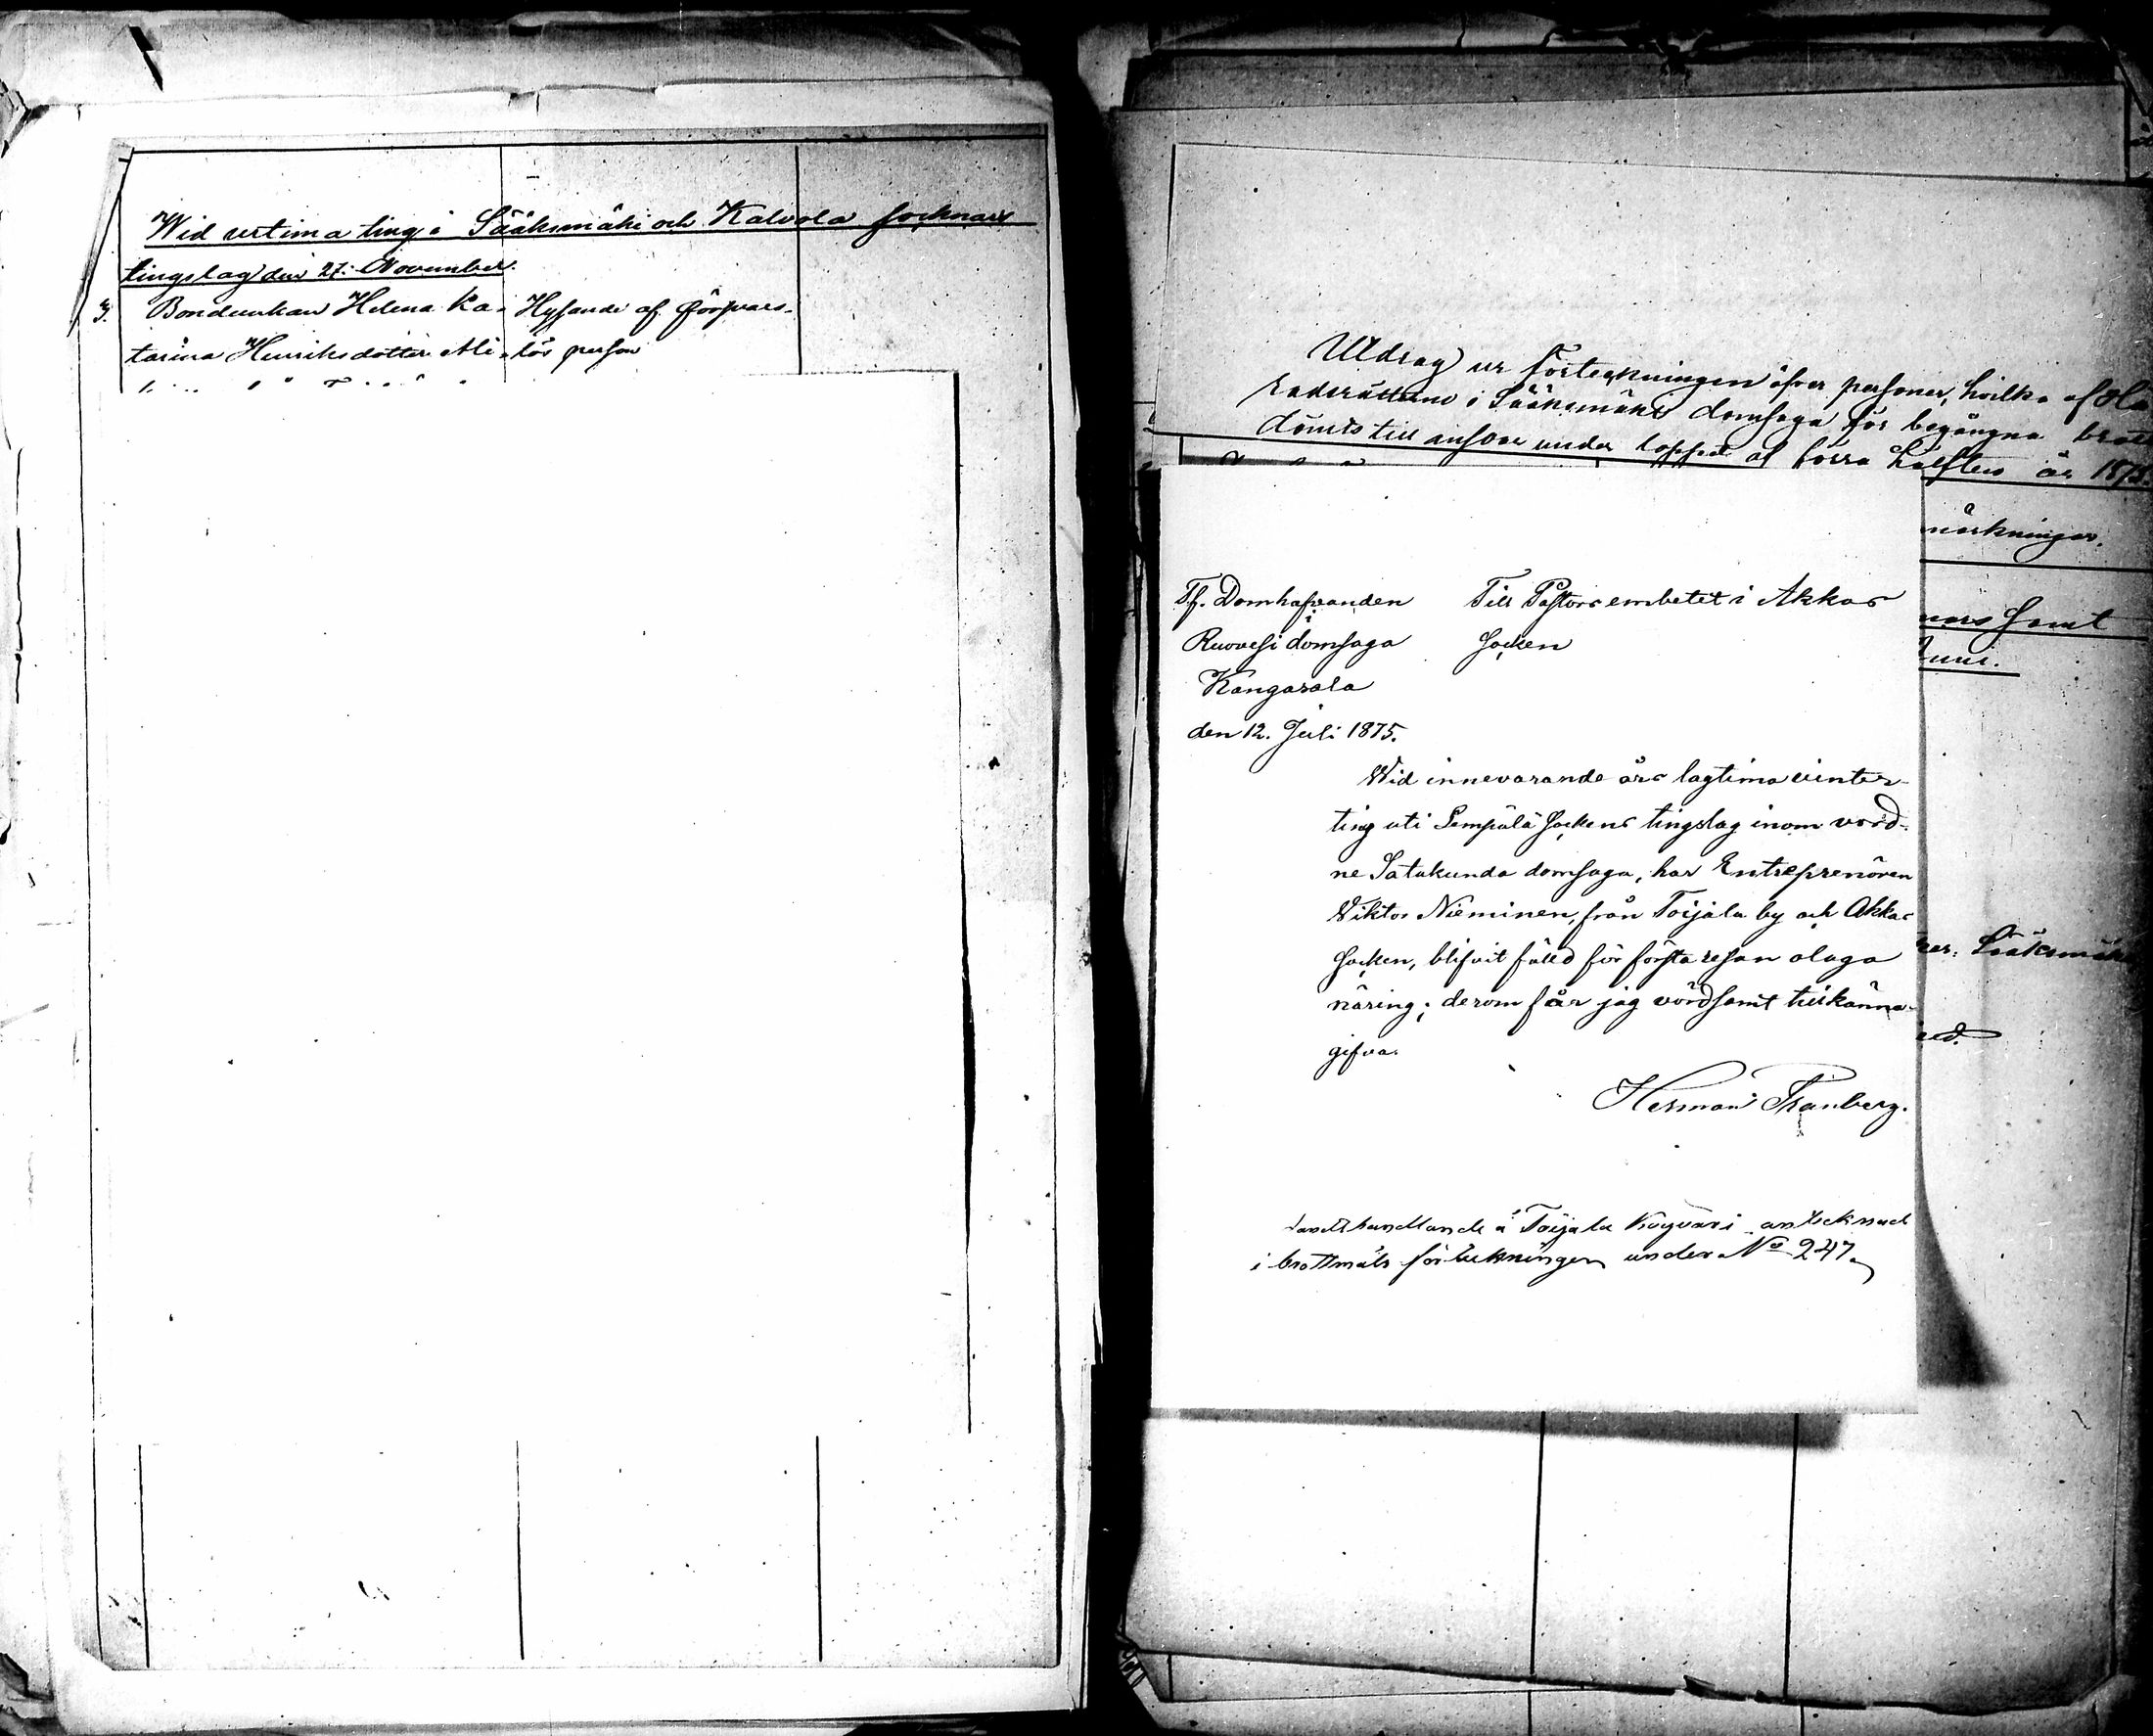 Wid urtima ting i Sääksmäki och Kalvola socknars
tingslag den 27. November.
3. Bondeenkan Helena Ka- Hysande af försvars-
tarina Henriksdotter Ali- lös person
Utdrag ur förteckningen öfver personer, hvilka af Hä
radsrätterne i Sääksmäki domsaga för begångna brott
dömts till ansvar under loppet af förra hälften år 1875.
märkningar.
Tf. Domhafvanden Till Pastorsembetet i Akkas
i
Ruovesi domsaga Socken
Kangasala
den 12. Juli 1875.
Wid innevarande års lagtima vinter-
ting uti Lempälä Sockens tingslag inom vord-
ne Satakunda domsaga, har Entreprenören
Viktor Nieminen, från Toijala by och Akkas
Socken, blifvit fälld för första resan olaga
näring; derom får jag vördsamt tillkänna-
gifva.
Herman Tranberg.
Landthandlande å Toijala antecknad
i brottmåls förteckningen under No 247.
nars samt
Juni.
ker, Sääksmäki